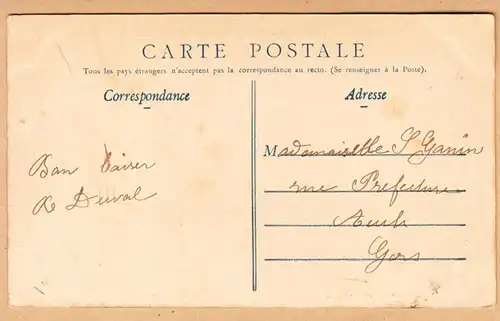 CARTE POSTALE
Tous les pays étrangers n'acceptent pas la correspondance au recto. (Se renseigner à la Poste).
Correspondance
Bon baiser
de Duval
Adresse
Mademoiselle S Ganin
rue Prefecture
Auch
Gers